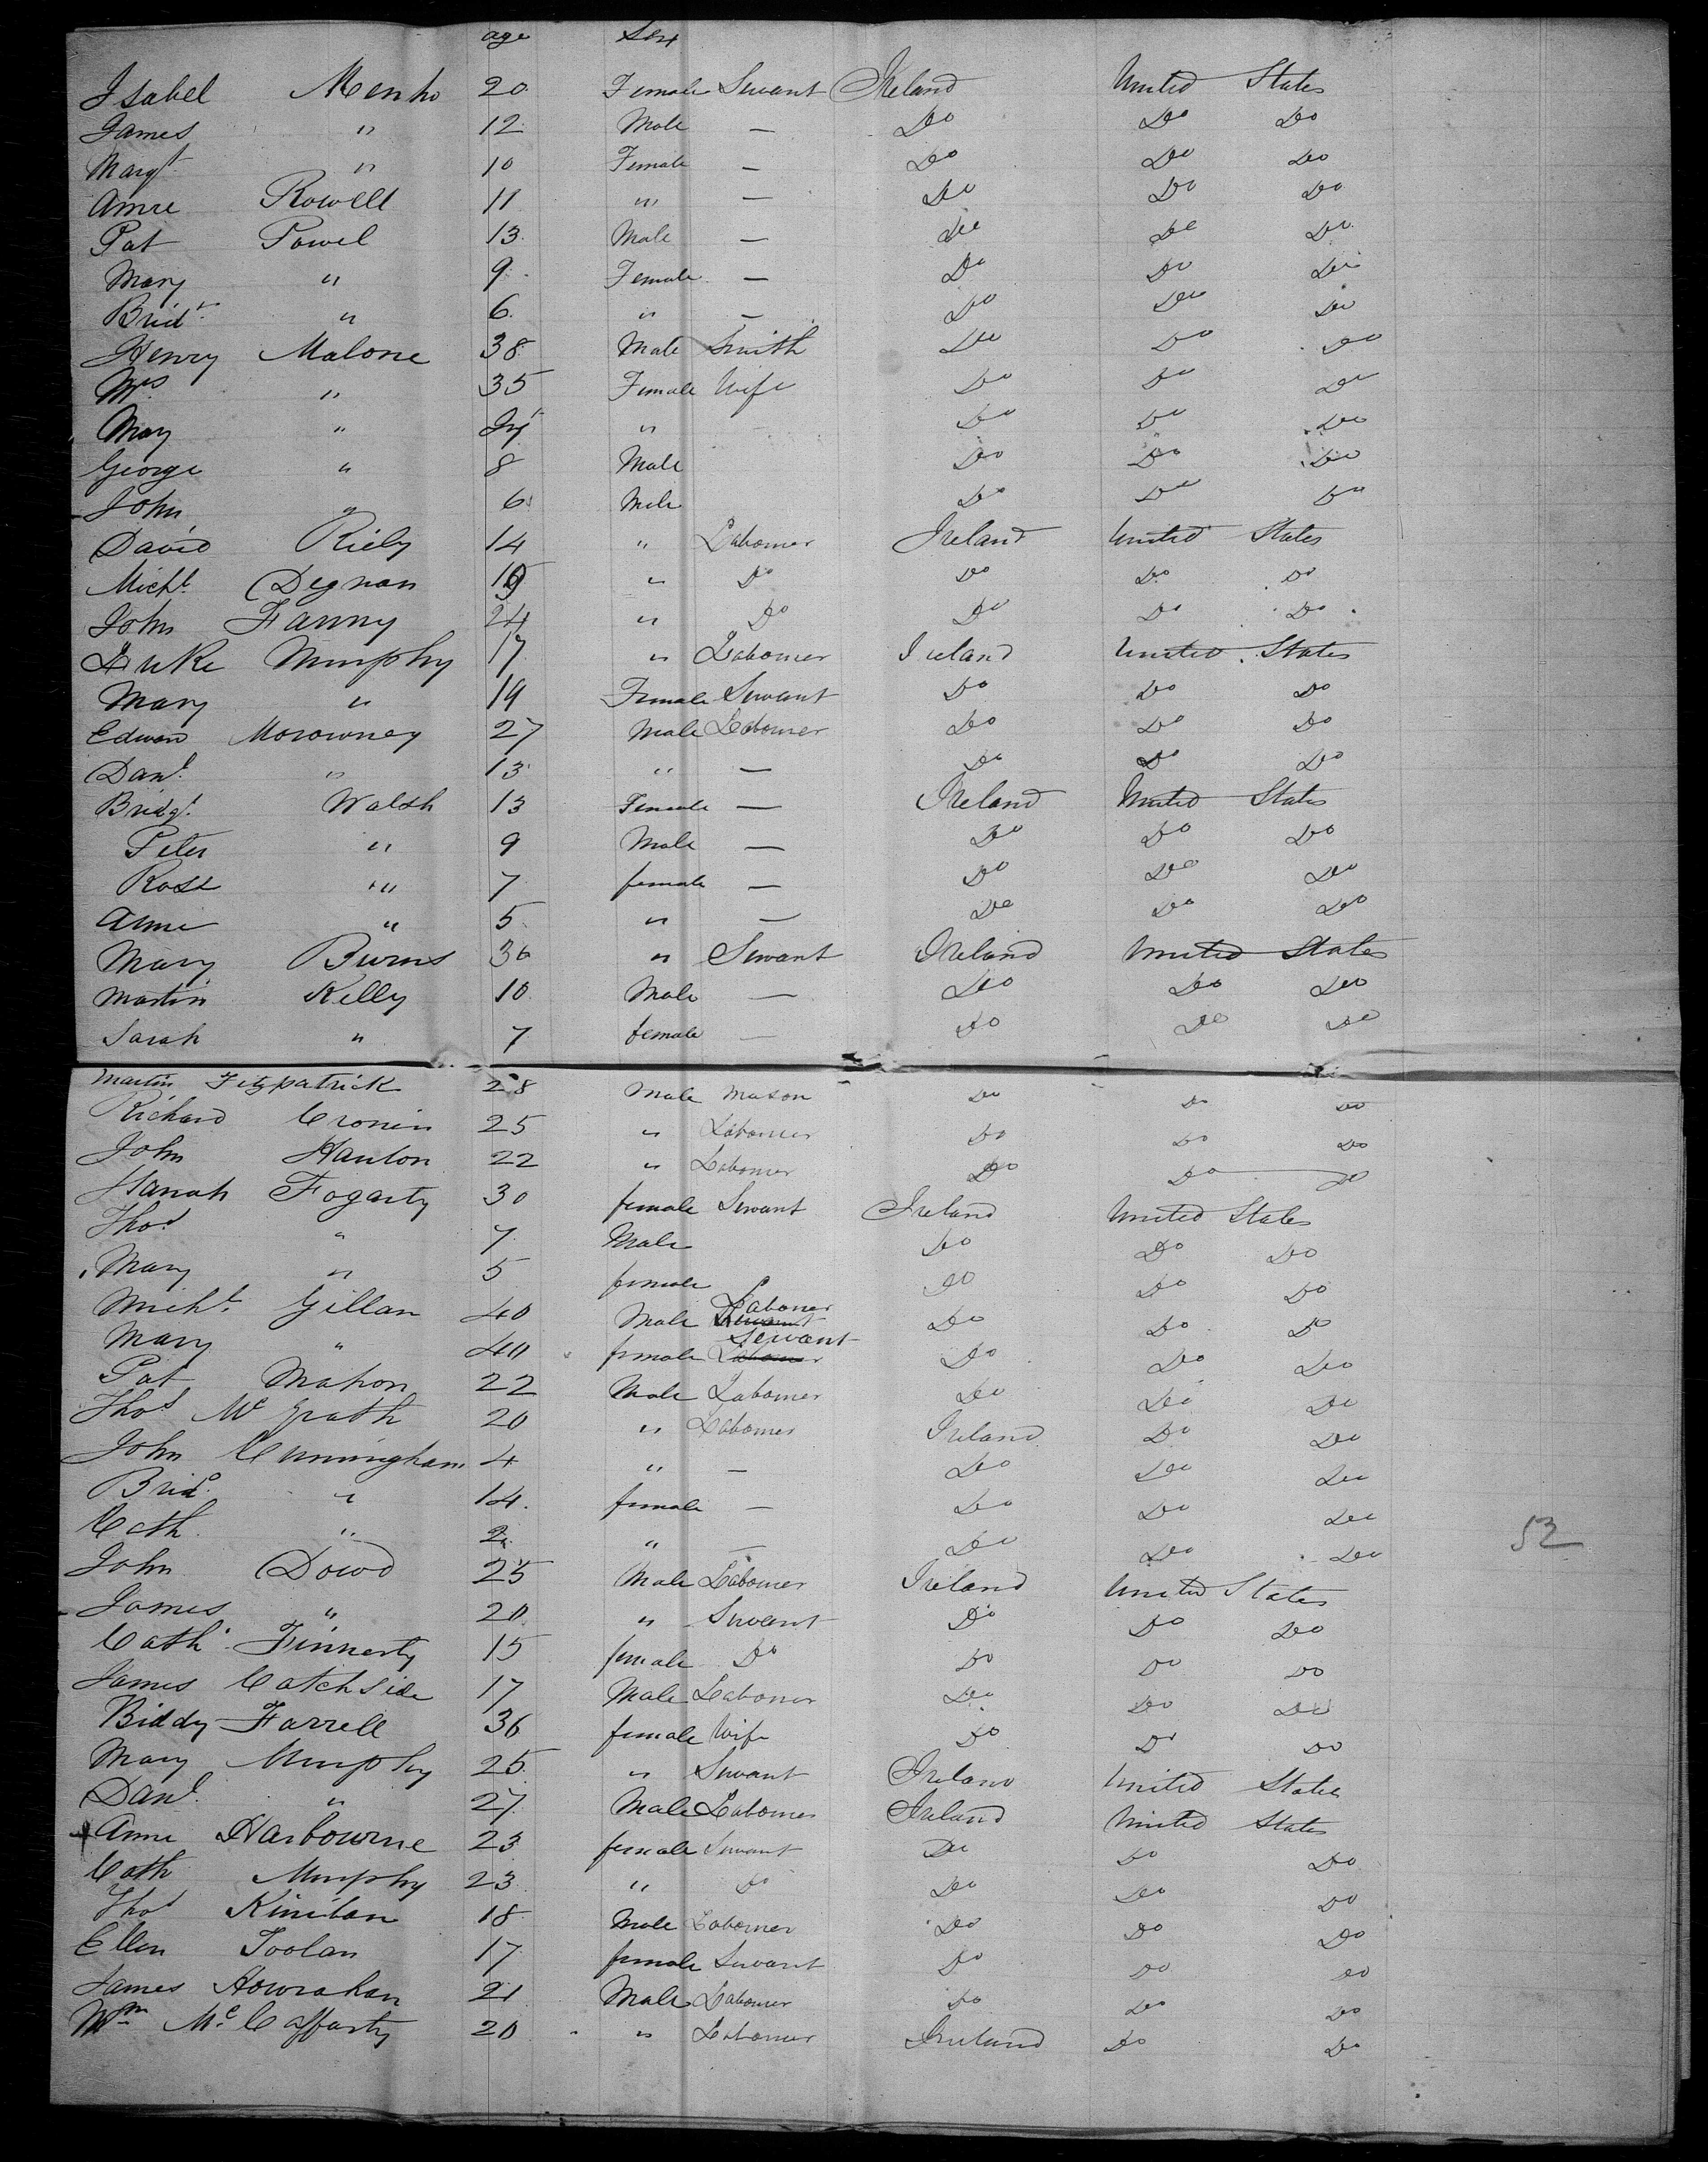 age Sex
Isabel 20 Female Servant Ireland United States
James " 12 Male — Do Do Do
Margt " 10 Female — Do Do Do
Anne Powell 11 " — Do Do Do
Pat Powel 13 Male — Do Do Do
Mary " 9 Female — Do Do Do
Bridt " 6 " — Do Do Do
Henry Malone 38 Male Smith Do Do Do
Mrs " 35 Female Wife Do Do Do
May " " Do Do Do
George " 8 Male Do Do Do
John " 6 Male Do Do Do
David Riely 14 " Labourer Ireland United States
Michl Degnan " Do Do Do Do
John Fanny 24 " Do Do Do Do
Luke Murphy 17 " Labourer Ireland United States
Mary " 19 Female Servant Do Do Do
Edward Morowney 27 Male Labourer Do Do Do
Danl " 13 " — Do Do Do
Bridgt Walsh 13 Female — Ireland United States
Peter " 9 Male — Do Do Do
Rose " 7 female — Do Do Do
Anne " 5 " — Do Do Do
Mary Burns 30 " Servant Ireland United States
Martin Kelly 10 Male — Do Do Do
Sarah " 7 female — Do Do Do
Martin Fitzpatrick 28 Male Mason Do Do Do
Richard Cronin 25 " Labourer Do Do Do
John Hanlon 22 " Labourer Do Do Do
Hanah Fogarty 30 female Servant Ireland United States
Thos " 7 Male Do Do Do
Mary " 5 female Do Do Do
Michl Gillan 40 Male Servant Labourer Do Do Do
Mary " 40 female Labourer Servant Do Do Do
Pat Mahon 22 Male Labourer Do Do Do
Thos McGrath 20 " Labourer Ireland Do Do
John Cunningham 4 " — Do Do Do
Brid " 14 female — Do Do Do
Cath " 2 " — Do Do Do
52
John Dowd 25 Male Labourer Ireland United States
James " 20 " Servant Do Do Do
Cath Finnerty 15 female Do Do Do Do
James Catchside 17 Male Labourer Do Do Do
Biddy Farrell 36 female Wife Do Do Do
Mary Murphy 25 " Servant Ireland United States
Danl " 27 Male Labourer Ireland United States
Anne Harbourne 23 female Servant Do Do Do
Cath Murphy 23 " Do Do Do Do
Thos Kinilan 18 Male Labourer Do Do Do
Ellen Toolan 17 female Servant Do Do Do
James Howrahan 21 Male Labourer Do Do Do
Wm McCafferty 20 " Labourer Ireland Do Do